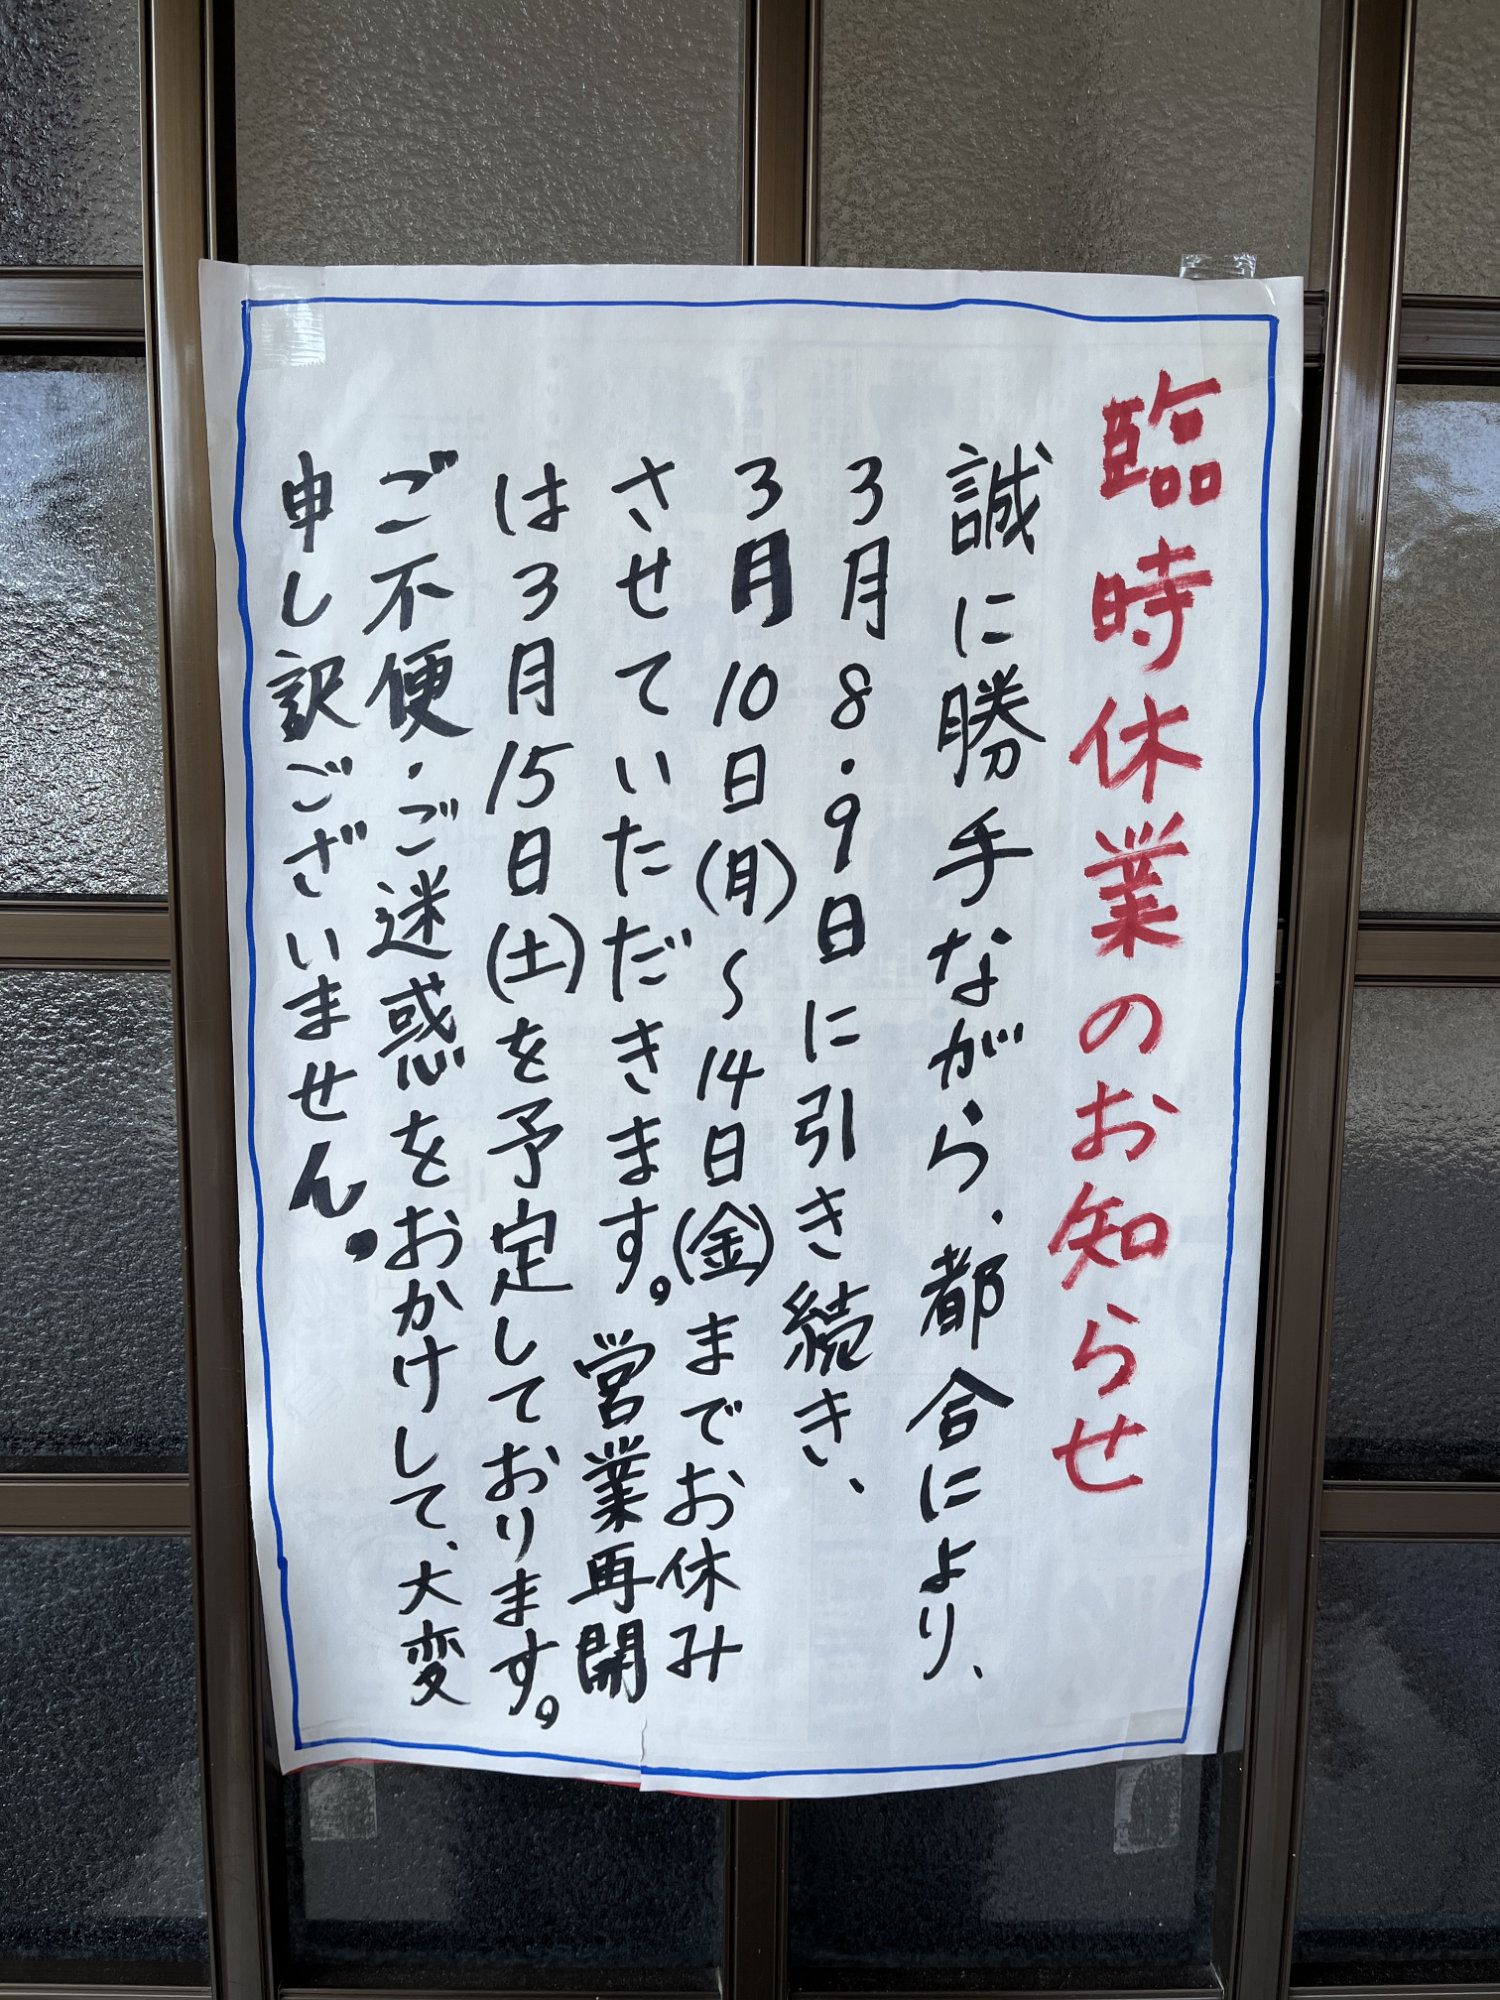 臨時休業のお知らせ
誠に勝手ながら、都合により、
3月8・9日に引き続き、
3月10日(月)〜14日(金)までお休み
させていただきます。営業再開
は3月15日(土)を予定しております。
ご不便・ご迷惑をおかけして、大変
申し訳ございません。